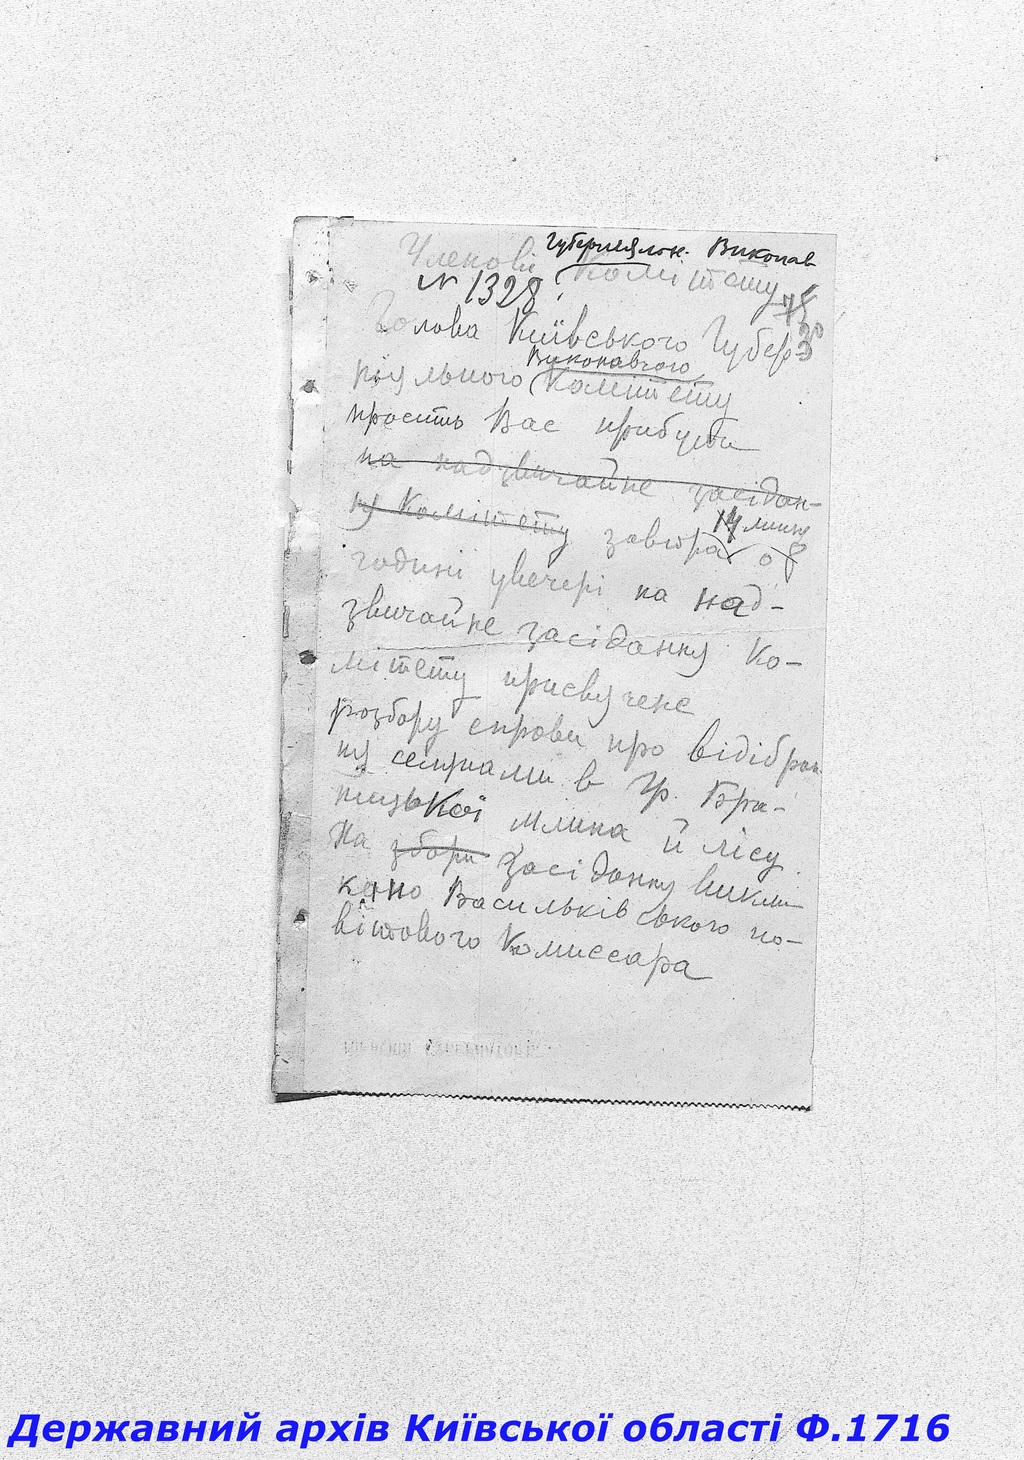 Губерніялон. Виконав
Членові Комітету
№ 1328
Голова Київського Губер-
Виконавчого
ріяльного Комітету
просить Вас прибути
на надзвичайне засідан-
ня Комітету завтра 14 о 8
годині увечері на над-
звичайне засідання Ко-
мітету присвячене
розбору справи про відібран-
ня селянами в гр. Бра-
ницької млина й лісу
На збори Засідання викли-
кано Васильківського по-
вітового Комиссара
Державний архів Київської області Ф.1716